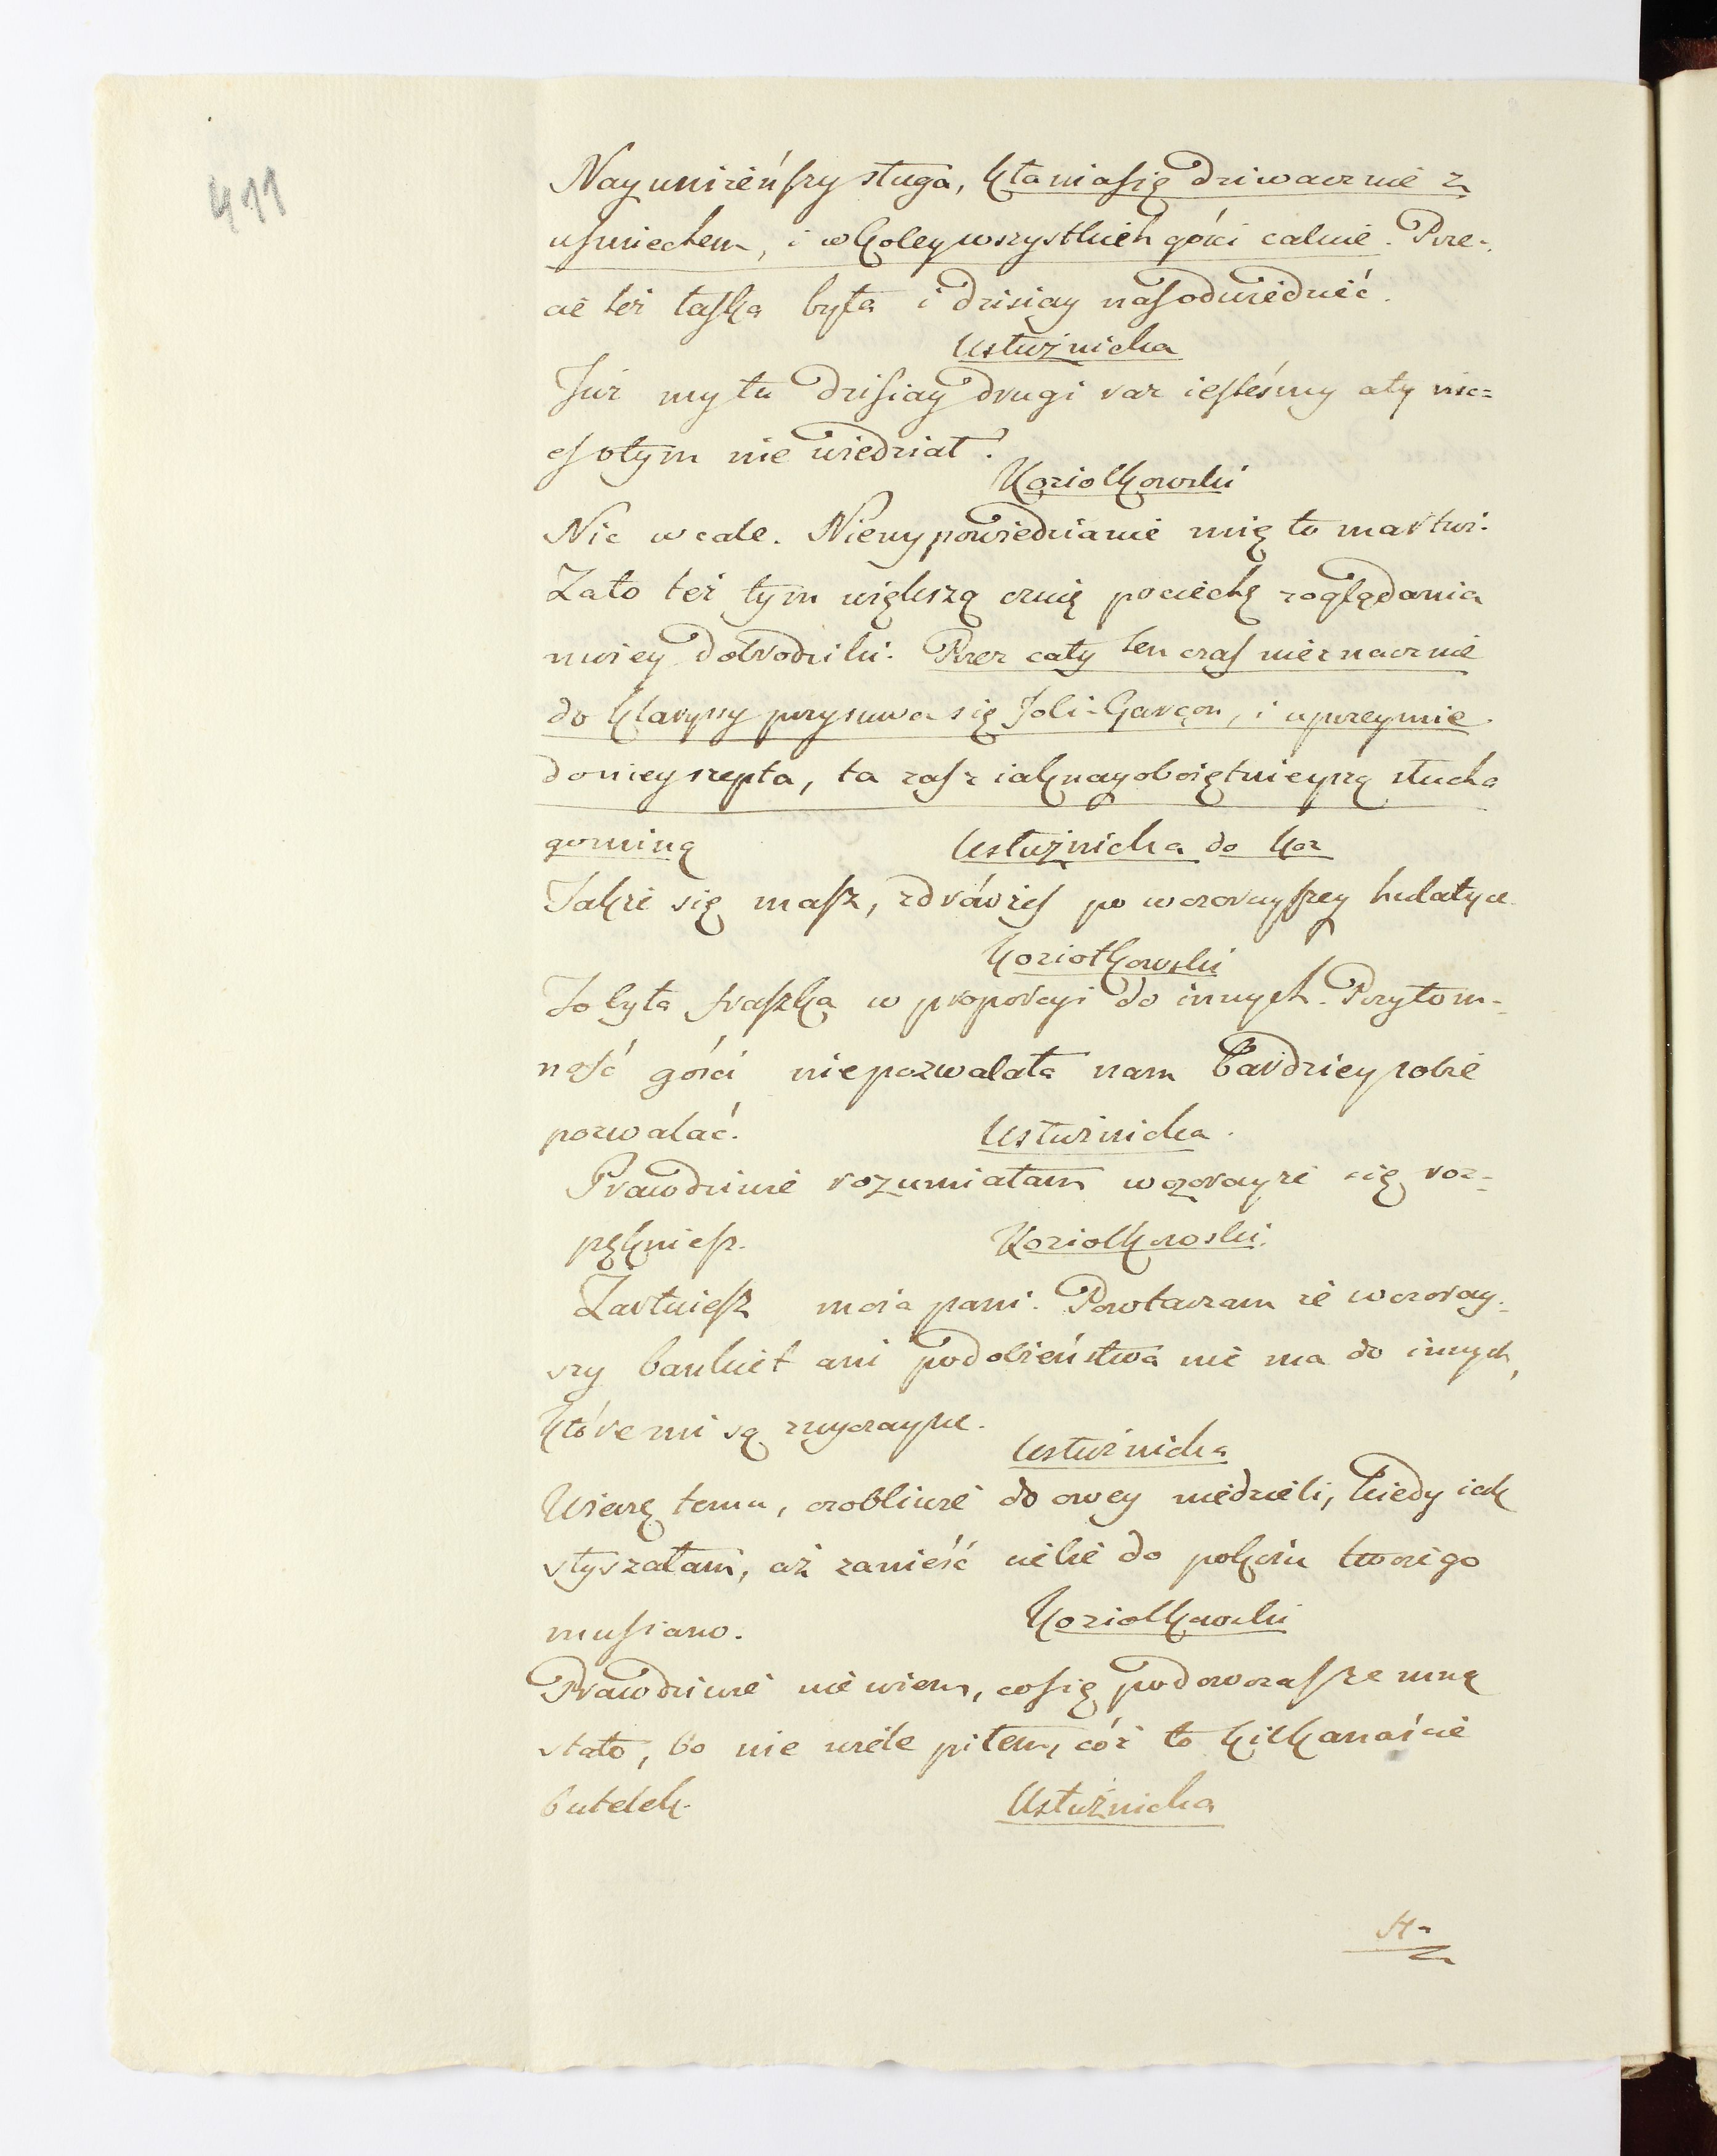 411
Nayuniżeńszy sługa, kłania się dziwacznie z
uśmiechem, i w koley wszystkich gości całuie. Prze-
cie też łaska była i dzisiay nas odwiedzić.
Usłużnicka
Już my tu dzisiay drugi raz iesteśmy a ty nic-
eś o tym nie wiedział?
Koziołkowski
Nic wcale. Niewypowiedzianie mię to martwi.
Za to też tym większą czuię pociechę z oglądania
mniey dobrodziki. Przez cały ten czas nieznacznie
do Klaryssy przysuwa się Joli-Garçon, i uprzeymie
do niey szepta, ta zaś z iak nayoboiętnieyszą słucha
go miną
Usłużnicka do Koz
Jakże się masz, zdrówżeś po wczorayszey hulatyce.
Koziołkowski
To była fraszka w proporcyi do innych. Przytom-
ność gości niepozwalała nam bardziey sobie
pozwalać.
Usłużnicka.
Prawdziwie rozumiałam wczoray że się roz-
pękniesz.
Koziołkowski.
Żartuiesz moia pani. Powtarzam że wczoray-
szy bankiet ani podobieństwa nie ma do innych,
które mi są zwyczayne.
Usłużnicka
Wierzę temu, osobliwie do owey niedzieli, kiedy iak
słyszałam, aż zanieść ciebie do pokoiu twoiego
musiano.
Koziołkowski
Prawdziwie nie wiem, co się podówczas ze mną
stało, bo nie wiele piłem, cóż to kilkanaście
butelek.
Usłużnicka